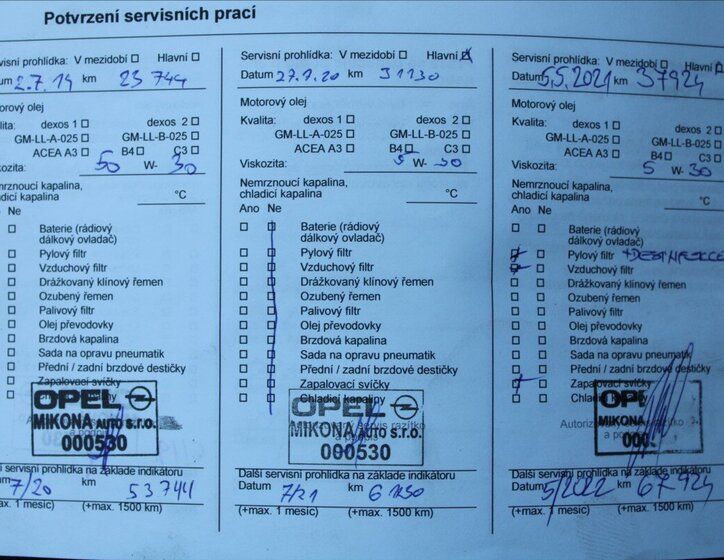 Potvrzení servisních prací
Servisní prohlídka: V mezidobí Hlavní
um 2.7.19 km 23 744
otorový olej
Kvalita: dexos 1 dexos 2
GM-LL-A-025 GM-LL-B-025
ACEA A3 B4 C3
Viskozita: 50 W- 30
Nemrznoucí kapalina,
chladicí kapalina °C
Ano Ne
Baterie (rádiový
dálkový ovladač)
Pylový filtr
Vzduchový filtr
Drážkovaný klínový řemen
Ozubený řemen
Palivový filtr
Olej převodovky
Brzdová kapalina
Sada na opravu pneumatik
Přední / zadní brzdové destičky
Zapalovací svíčky
OPEL
MIKONA AUTO s.r.o.
000530
í servisní prohlídka na základě indikátoru
um 7/20 km 53744
(+max. 1 měsíc) (+max. 1500 km)
Servisní prohlídka: V mezidobí Hlavní
Datum 27.7.20 km 31130
Motorový olej
Kvalita: dexos 1 dexos 2
GM-LL-A-025 GM-LL-B-025
ACEA A3 B4 C3
Viskozita: 5 W- 30
Nemrznoucí kapalina,
chladicí kapalina °C
Ano Ne
Baterie (rádiový
dálkový ovladač)
Pylový filtr
Vzduchový filtr
Drážkovaný klínový řemen
Ozubený řemen
Palivový filtr
Olej převodovky
Brzdová kapalina
Sada na opravu pneumatik
Přední / zadní brzdové destičky
Zapalovací svíčky
Chladicí kapaliny
OPEL
Autorizovaný servis razítko
MIKONA AUTO s.r.o.
a podpis
000530
Další servisní prohlídka na základě indikátoru
Datum 7/21 km 61130
(+max. 1 měsíc) (+max. 1500 km)
Servisní prohlídka: V mezidobí Hlavní
Datum 5.5.2021 km 37924
Motorový olej
Kvalita: dexos 1 dexos 2
GM-LL-A-025 GM-LL-B-025
ACEA A3 B4 C3
Viskozita: 5 W- 30
Nemrznoucí kapalina,
chladicí kapalina °C
Ano Ne
Baterie (rádiový
dálkový ovladač)
Pylový filtr
Vzduchový filtr
Drážkovaný klínový řemen
Ozubený řemen
Palivový filtr
Olej převodovky
Brzdová kapalina
Sada na opravu pneumatik
Přední / zadní brzdové destičky
Zapalovací svíčky
OPEL
MIKONA
000
Další servisní prohlídka na základě indikátoru
Datum 5/2022 km 67924
(+max. 1 měsíc) (+max. 1500 km)